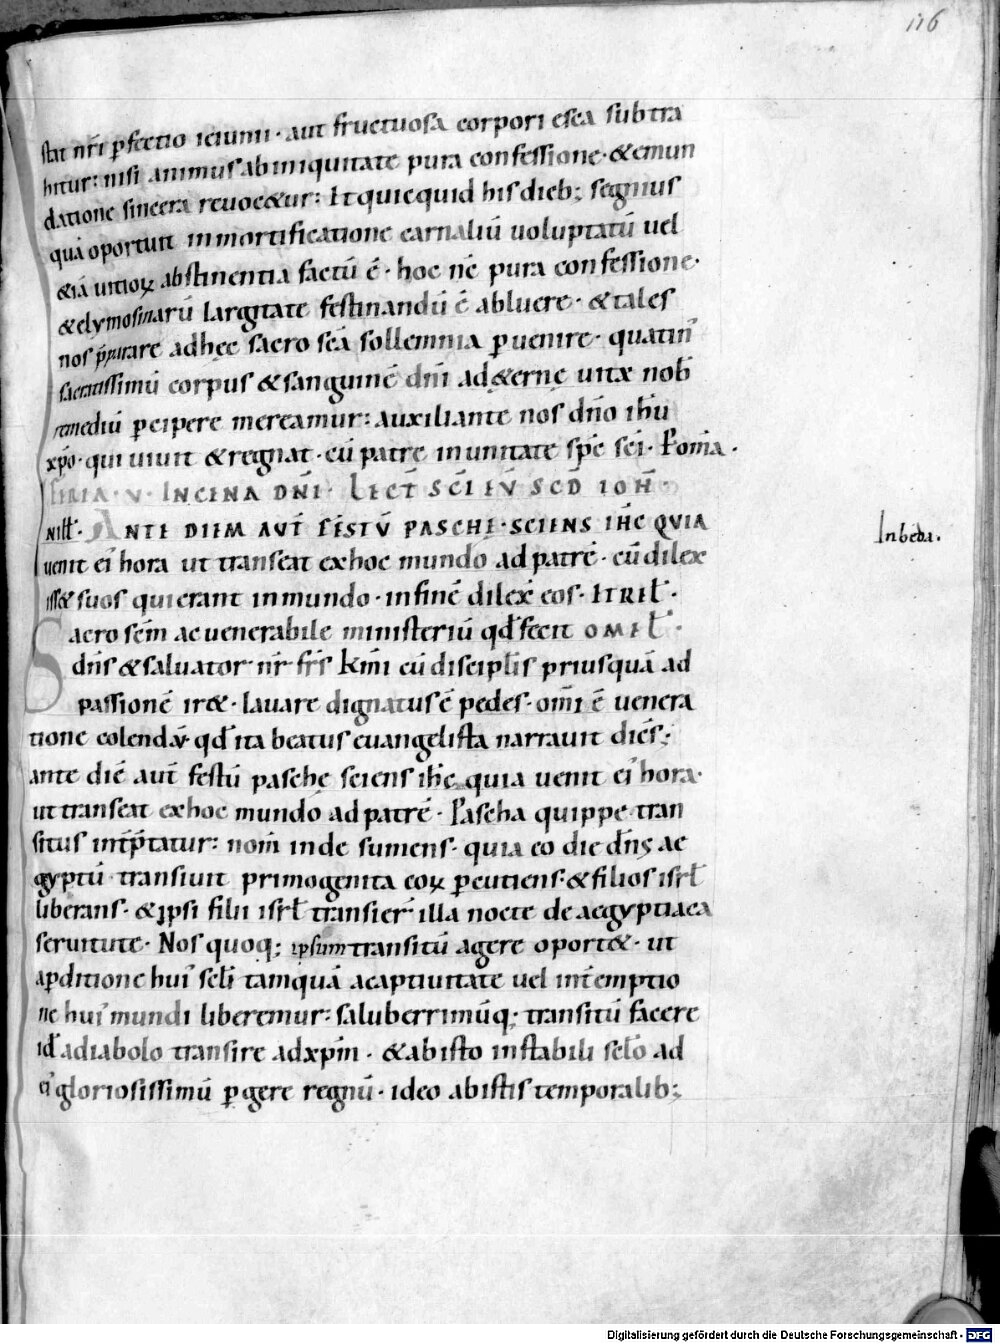 116
stat nr̄i p̄fectio ieiunii · aut fructuosa corpori esca subtra
hitur: nisi animus ab iniquitate pura confessione · & emun
datione sincera reuoc&ur: Et quicquid his dieb; segnius
quā oportuit in mortificatione carnaliū uoluptatū uel
&iā uitioꝝ abstinentia factū ē · hoc nc̄ pura confessione ·
& elymosinarū largitate festinandū ē abluere · & tales
nos p̄parare ad hęc sacro sc̄a sollemnia ꝑuenire · quatin'
sacratissimū corpus & sanguinē dn̄i ad &ernę uitæ nob̄
remediū ꝑcipere mereamur: auxiliante nos dn̄o ih̄u
xp̄o · qui uiuit & regnat · cū patre in unitate sp̄c sc̄i · P omīa ·
FERIA · V · IN CENA DN̄I · LECT SC̄I EV̄ SCD̄ IOH̄
NIL̄L · ANTE DIEM AUT̄ FESTV̄ PASCHE · SCIENS IH̄C QVIA
uenit ei' hora ut transeat ex hoc mundo ad patrē · cū dilex
iss& suos qui erant in mundo · in finē dilex̄ eos · ET REL̄ ·
Sacro sc̄m ac uenerabile ministeriū qd̄ fecit OMEL̄ ·
dn̄s & saluator nr̄ fr̄s km̄i cū discipl̄is priusquā ad
passionē ir& · lauare dignatus ē pedes · om̄i ē uenera
tione colendū · qd̄ ita beatus euangelista narrauit dicēs;
ante diē aut̄ festū paschę sciens ih̄c quia uenit ei' hora ·
ut transeat ex hoc mundo ad patrē · Pascha quippe tran
situs int̄p̄tatur: nom̄ inde sumens · quia eo die dn̄s ae
gyptū transiuit primogenita eoꝝ ꝑcutiens · & filios isrl̄
liberans · & ipsi filii isrl̄ transier̄ illa nocte de aegyptiaca
seruitute · Nos quoq; ipsum transitū agere oport& · ut
aꝑditione hui' scl̄i tamquā a captiuitate uel int̄emptio
ne hui' mundi liberemur: saluberrimūq; transitū facere
id̄ a diabolo transire ad xp̄m · & ab isto instabili scl̄o ad
ei' gloriosissimū ꝑgere regnū · ideo ab istis temporalib;
In beda.
Digitalisierung gefördert durch die Deutsche Forschungsgemeinschaft - DFG